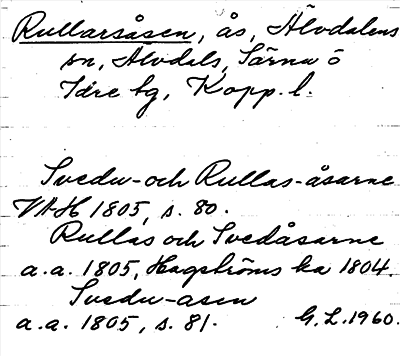 Rullarsåsen, ås, Älvdalens
sn, Älvdals, Särna ö
Idre tg, Kopp. l.
Svedu-och Rullas-åsarne
VAH 1805, s. 80.
Rullas och Svedåsarne
a.a. 1805, Hagströms ka 1804.
Svedu-asen
a.a. 1805, s. 81. G.L. 1960.